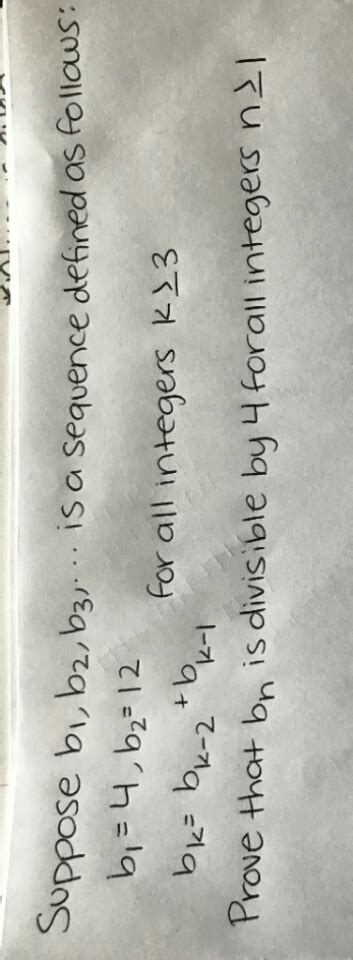 Suppose b₁, b₂, b₃, ... is a sequence defined as follows:
b₁ = 4, b₂ = 12
bₖ = bₖ₋₂ + bₖ₋₁ for all integers k ≥ 3
Prove that bₙ is divisible by 4 for all integers n ≥ 1